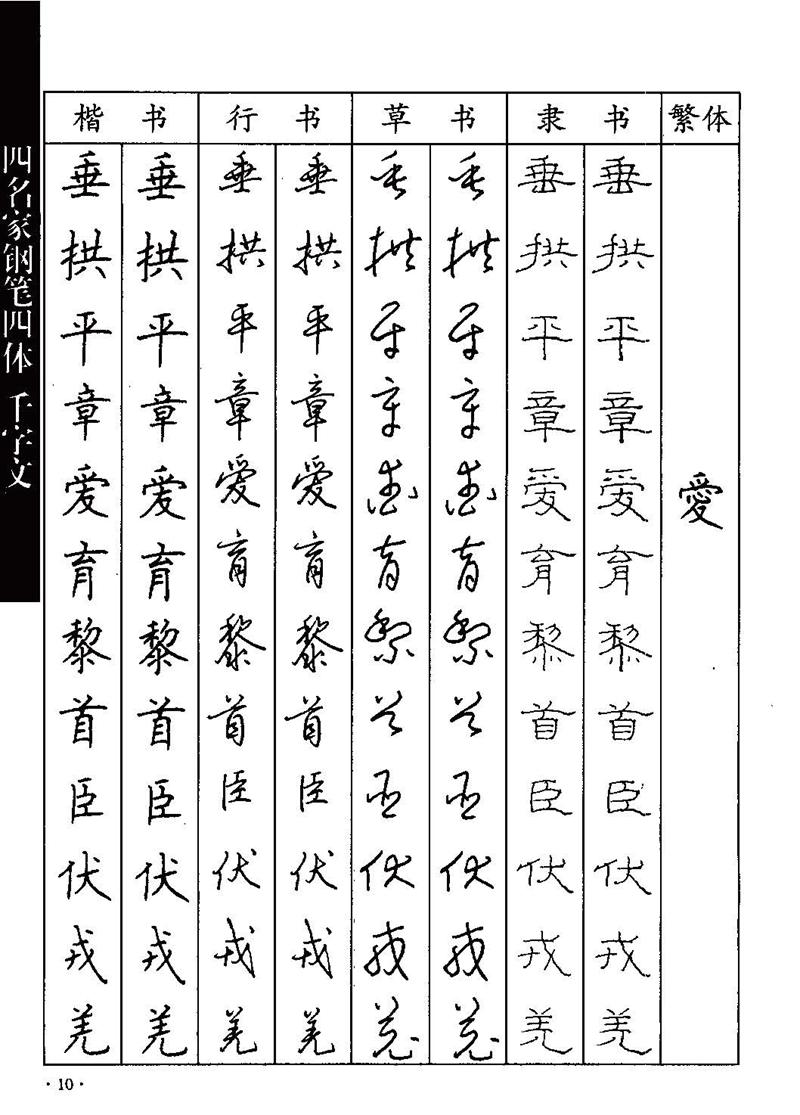 四名家钢笔四体 千字文
楷书 行书 草书 隶书 繁体
垂 垂 垂 垂 垂 垂 垂 垂
拱 拱 拱 拱 拱 拱 拱 拱
平 平 平 平 平 平 平 平
章 章 章 章 章 章 章 章
爱 爱 爱 爱 爱 爱 爱 爱 愛
育 育 育 育 育 育 育 育
黎 黎 黎 黎 黎 黎 黎 黎
首 首 首 首 首 首 首 首
臣 臣 臣 臣 臣 臣 臣 臣
伏 伏 伏 伏 伏 伏 伏 伏
戎 戎 戎 戎 戎 戎 戎 戎
羌 羌 羌 羌 羌 羌 羌 羌
·10·